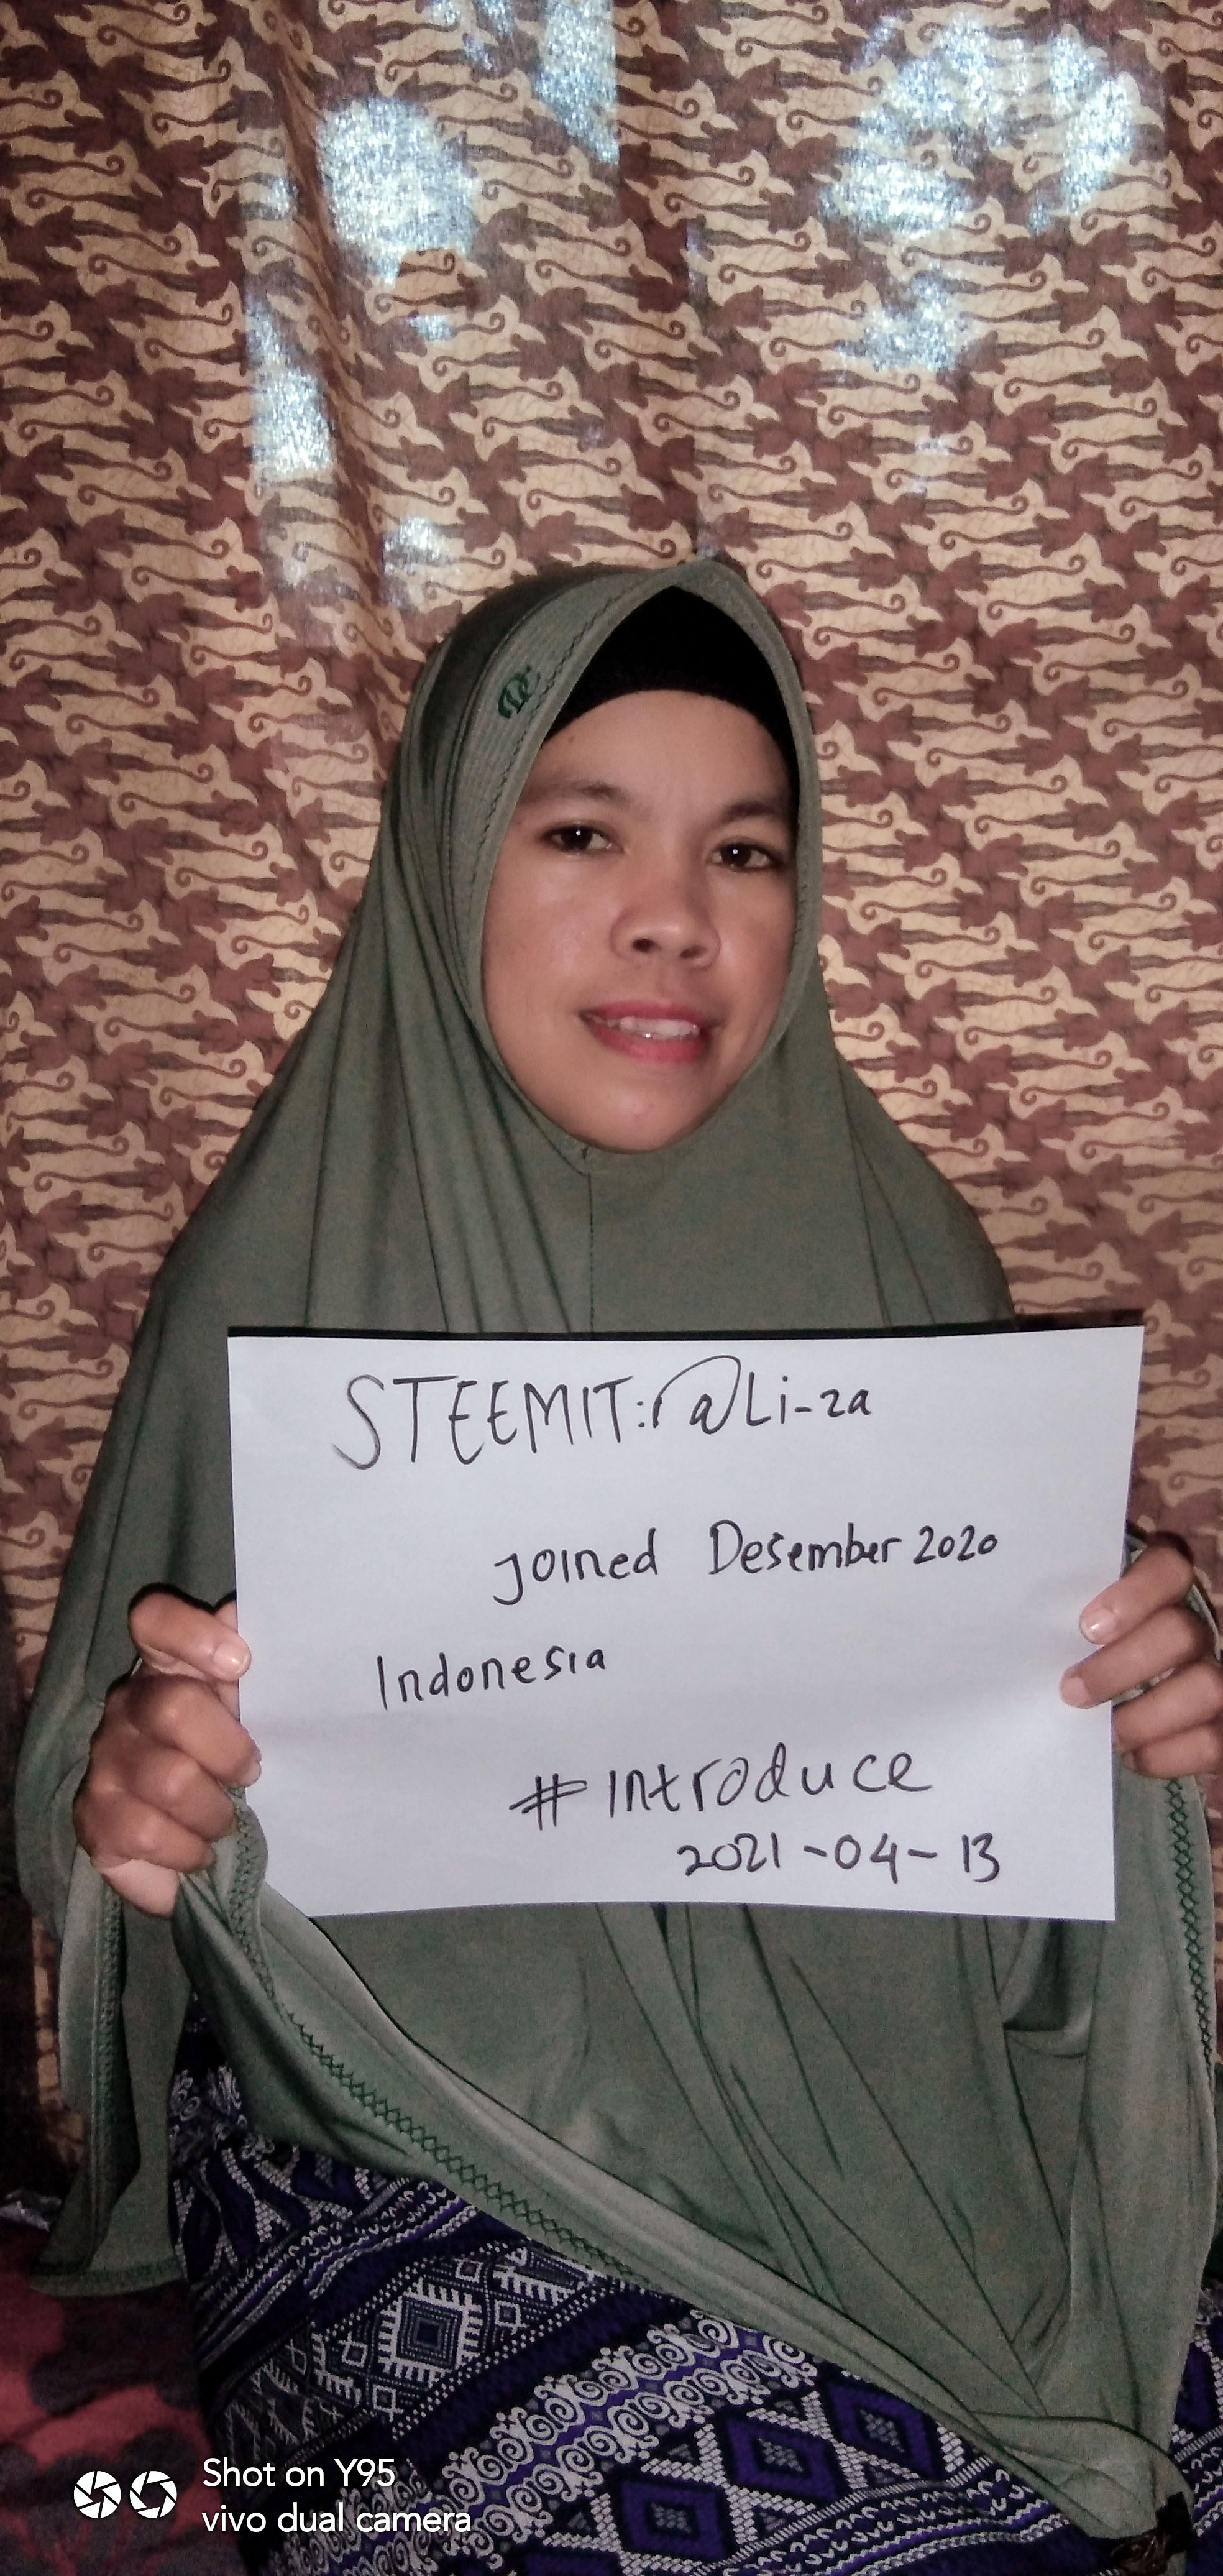 STEEMIT: @Li-za
joined Desember 2020
Indonesia
#introduce
2021-04-13
Shot on Y95
vivo dual camera